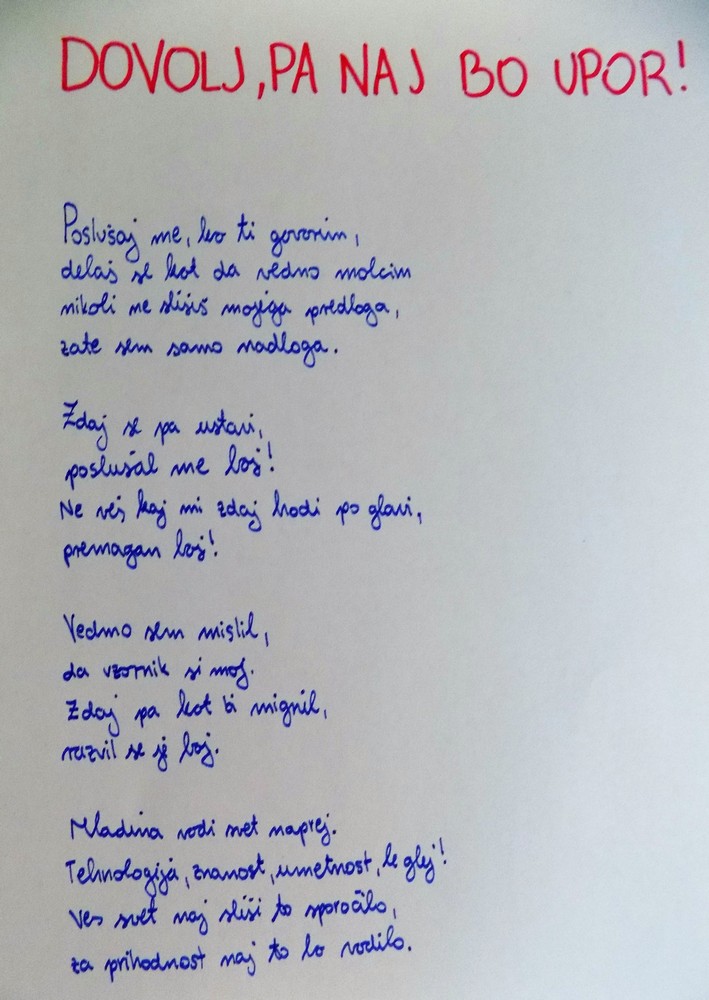 DOVOLJ, PA NAJ BO UPOR!
Poslušaj me, ko ti govorim,
delaš se kot da vedno molcim
nikoli ne slišiš mojega predloga,
zate sem samo nadloga.
Zdaj se pa ustavi,
poslušal me boš!
Ne veš kaj mi zdaj hodi po glavi,
premagan boš!
Vedno sem mislil,
da vzornik si moj.
Zdaj pa kot bi mignil,
razvil se je boj.
Mladina vodi svet naprej.
Tehnologija, znanost, umetnost, le glej!
Ves svet naj sliši to sporočilo,
za prihodnost naj to bo vodilo.